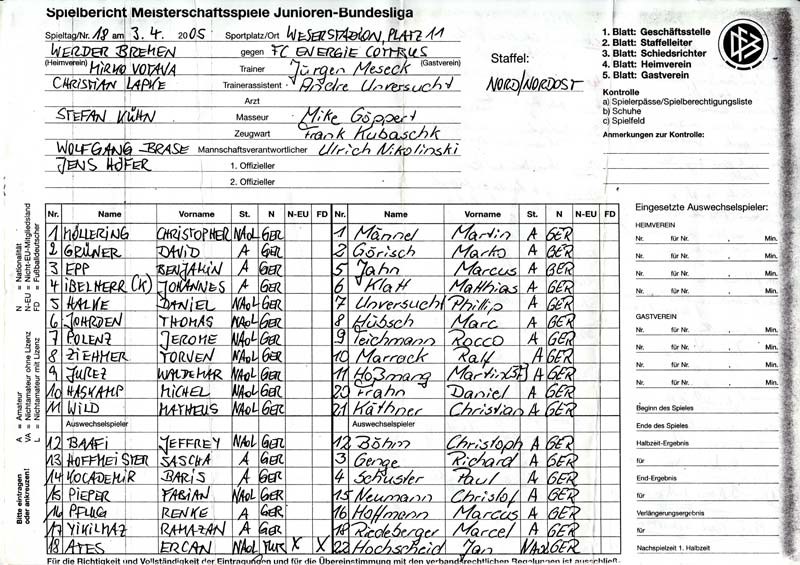 Spielbericht Meisterschaftsspiele Junioren-Bundesliga
Spieltag/Nr. 18 am 3. 4. 2005 Sportplatz/Ort WESERSTADION, PLATZ 11
WERDER BREMEN gegen FC ENERGIE COTTBUS
(Heimverein) (Gastverein)
MIRKO VOTAVA Trainer Jürgen Meseck
CHRISTIAN LAPKE Trainerassistent Andre Unversucht
Arzt
STEFAN KÜHN Masseur Mike Göppert
Zeugwart Frank Kubaschk
WOLFGANG BRASE Mannschaftsverantwortlicher Ulrich Nikolinski
JENS HÖFER 1. Offizieller
2. Offizieller
Staffel:
NORD/NORDOST
1. Blatt: Geschäftsstelle
2. Blatt: Staffelleiter
3. Blatt: Schiedsrichter
4. Blatt: Heimverein
5. Blatt: Gastverein
DFB
Kontrolle
a) Spielerpässe/Spielberechtigungsliste
b) Schuhe
c) Spielfeld
Anmerkungen zur Kontrolle:
N = Nationalität
N-EU = Nicht-EU-Mitgliedsland
FD = Fußballdeutscher
A = Amateur
VA = Nichtamateur ohne Lizenz
L = Nichtamateur mit Lizenz
Bitte eintragen oder ankreuzen!
Nr. Name Vorname St. N N-EU FD Nr. Name Vorname St. N N-EU FD
1 MÖLLERING CHRISTOPHER NAoL GER 1 Männel Martin A GER
2 GRÜNER DAVID A GER 2 Görisch Marko A GER
3 EPP BENJAMIN A GER 5 Jahn Marcus A GER
4 IBELHERR (K) JOHANNES A GER 6 Klatt Matthias A GER
5 HALKE DANIEL NAoL GER 7 Unversucht Phillip A GER
6 JOHRDEN THOMAS NAoL GER 8 Hübsch Marc A GER
7 POLENZ JEROME NAoL GER 9 Teichmann Rocco A GER
8 ZIEHMER TORVEN NAoL GER 10 Marrack Ralf A GER
9 JUREZ WALDEMAR NAoL GER 11 Hoßmang Martin A GER
10 HASKAMP MICHEL NAoL GER 20 Frahn Daniel A GER
11 WILD MATHEUS NAoL GER 21 Käthner Christian A GER
Auswechselspieler Auswechselspieler
12 BAAFI JEFFREY NAoL GER 12 Böhm Christoph A GER
13 HOFFMEISTER SASCHA A GER 3 Genge Richard A GER
14 KOCADEMIR BARIS A GER 4 Schuster Paul A GER
15 PIEPER FABIAN NAoL GER 15 Neumann Christof A GER
16 PFLUG RENKE A GER 16 Hoffmann Marcus A GER
17 YIKILMAZ RAMAZAN A GER 18 Riedeberger Marcel A GER
18 ATES ERCAN NAoL X X 22 Hochscheid Jan NAoL GER
Für die Richtigkeit und Vollständigkeit der Eintragungen und für die Übereinstimmung mit den verbandsrechtlichen Regelungen ist ausschließ
Eingesetzte Auswechselspieler:
HEIMVEREIN
Nr. für Nr. Min.
Nr. für Nr. Min.
Nr. für Nr. Min.
Nr. für Nr. Min.
GASTVEREIN
Nr. für Nr. Min.
Nr. für Nr. Min.
Nr. für Nr. Min.
Nr. für Nr. Min.
Beginn des Spieles
Ende des Spieles
Halbzeit-Ergebnis
für
End-Ergebnis
für
Verlängerungsergebnis
für
Nachspielzeit 1. Halbzeit